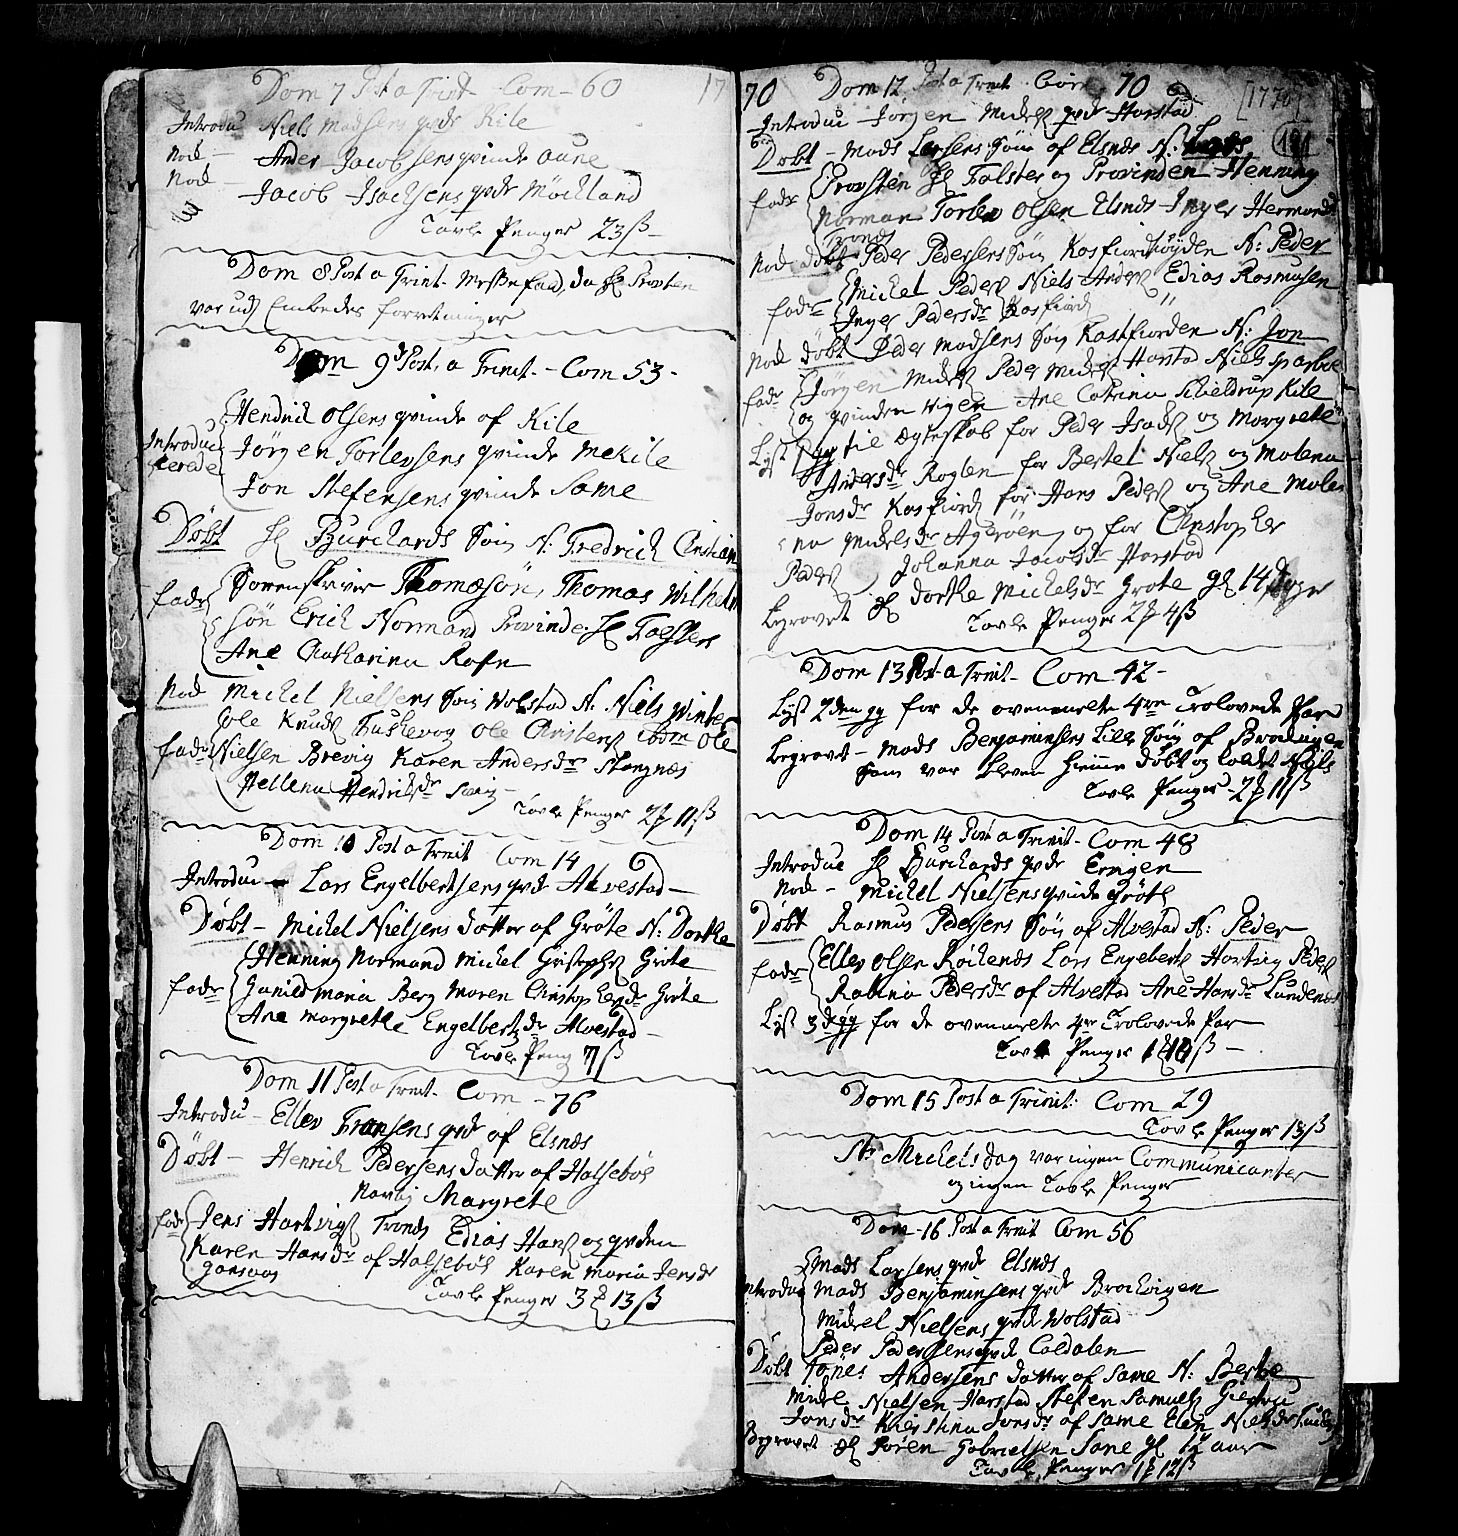 Dom 7 Post a Trint Com - 60 17
Introdu Niels Madsens qvde Kile
Nod - Ander Jacobsens qvinde Aune
Nod - Jacob Isachsens qvde Möckland
Tavle Penger 23 ß -
Dom 8 Post a Trint. Messefald, da H Provsten
var ud Embedes forretninger
Dom 9d Post, a Trinit. - Com 53 -
Hendrich Olsens qvinde af Kile
Introduc Jörgen Torlevsens qvinde Mekile
Jon Stefensens qvinde Same
Döbt H Burchards Sön N: Fredrich Christian
fadr Sorenskriver Thomæsön, Thomas Wilhelm
sön Erich Normand Provinde H Falsters
Ane Catharina Rafn
Nod Michel Nielsens Sön Wolstad N: Niels Winter
Ole Knuds Fuskevog Ole Christens ibdm Ole
fadr Nielsen Brevig Karen Andersdr Stengnæs
Hellena Hendrichsdr
Tavle Penger 2 11 ß
Dom 10 Post a Trinit Com 14
Introduc - Lars Engelbertsens qvde Alvestad -
Döbt - Michel Nielsens datter af Gröte N: Dorthe
Henning Normand Michel Gröte
fadr Gunild Maria Berg Maren Christophersdr Gröte
Ane Margrethe Engelbertsdr Alvestad -
Tavle Peng 7 ß
Dom 11 Post a Trinit. Com - 76
Introdu - Ellev Fransens qvde af Elsnæs
Döbt - Henrich Pedersens datter af Halseböe
Navn Margrete
fadr Jens Hartvigs Trones Edias Hans og qvden
Karen Hansdr af Halseböe Karen Maria Jensdr
Gansaas
Tavle Penger 3 13 ß
70 Dom 12 Post a Trinit. Com 70 [1770]
Introduc Jörgen Michels qvde Harstad
Döbt - Mads Larsens Sön af Elsnæs N: Lars 191
fadr Provsten H Falster og Provinden Henning
Norman Torlev Olsen Elsnæs Inger Hermansdr
Trones
Nod döbt Peder Pedersens Sön Kasfiordhöyden N: Peder
fadr Michel Peders Niels Anders Edias Rasmusen
Inger Pedersdr Kasfiord
Nod döbt Peder Madsens Sön Kasfiorden N: Jon
fadr Jörgen Michels Peder Michels Harstad Niels
og qvinden Vigen Ane Catrina Schieldrup Kile
Lyst gg til ægteskab for Peder Isachs og Margrete
Andersdr Roglen for Bertel Niels og Malena
Jonsdr Kasfiord for Hans Peders og Ane Male
na Michelsdr Ageröen og for Christopher
Peders, Johanna Jacobsdr Harstad
Begravet H Dorthe Michelsdr Gröte gl 14 dage
Tavle Penger 2 4 ß
Dom 13 Post a Trinit. Com 42 -
Lyst 2den gg for de ovenmelte 4re Trolovede Par
Begravet - Mads Benjaminsens Lille Sön af Brochvigen
som var bleven hieme döbt og kaldet Niels
Tavle Penger - 2 11 ß
Dom 14 Post a Trinit. Com 48
Introduc H Burchards qvde Ervigen
Nod - Michel Nielsens qvinde Gröte
Döbt Rasmus Pedersens Sön af Alvestad N: Peder
fadr Ellev Olsen Röckenæs Lars Engeberts Hartvig Peders
Rabina Pedersdr af Alvestad Ane Hansdr Lundenæs
Lyst 3de gg for de ovenmelte 4re Trolovede Par
Tavle Penger 1 10 ß -
Dom 15 Post a Trinit: Com 29
Tavle Penger 13 ß
St Michelsdag var ingen Communicanter
og ingen Tavle Penger
Dom - 16 Post a Trinit Com 56
Mads Larsens qvde Elsnæs
Introduc Mads Benjaminsens qvde Brochvigen
Michel Nielsens qvde Wolstad
Peder Pedersens qvde Caldalen
Döbt Andersens datter af Same N: Berthe
Michel Nielsen Harstad Stefen Samuels
Jonsdr Kierstina Jonsdr af Same Elen Nielsdr
Begravet H Sören Gabrielsen Sane gl 12 aar
Tavle Penger 1 12 ß